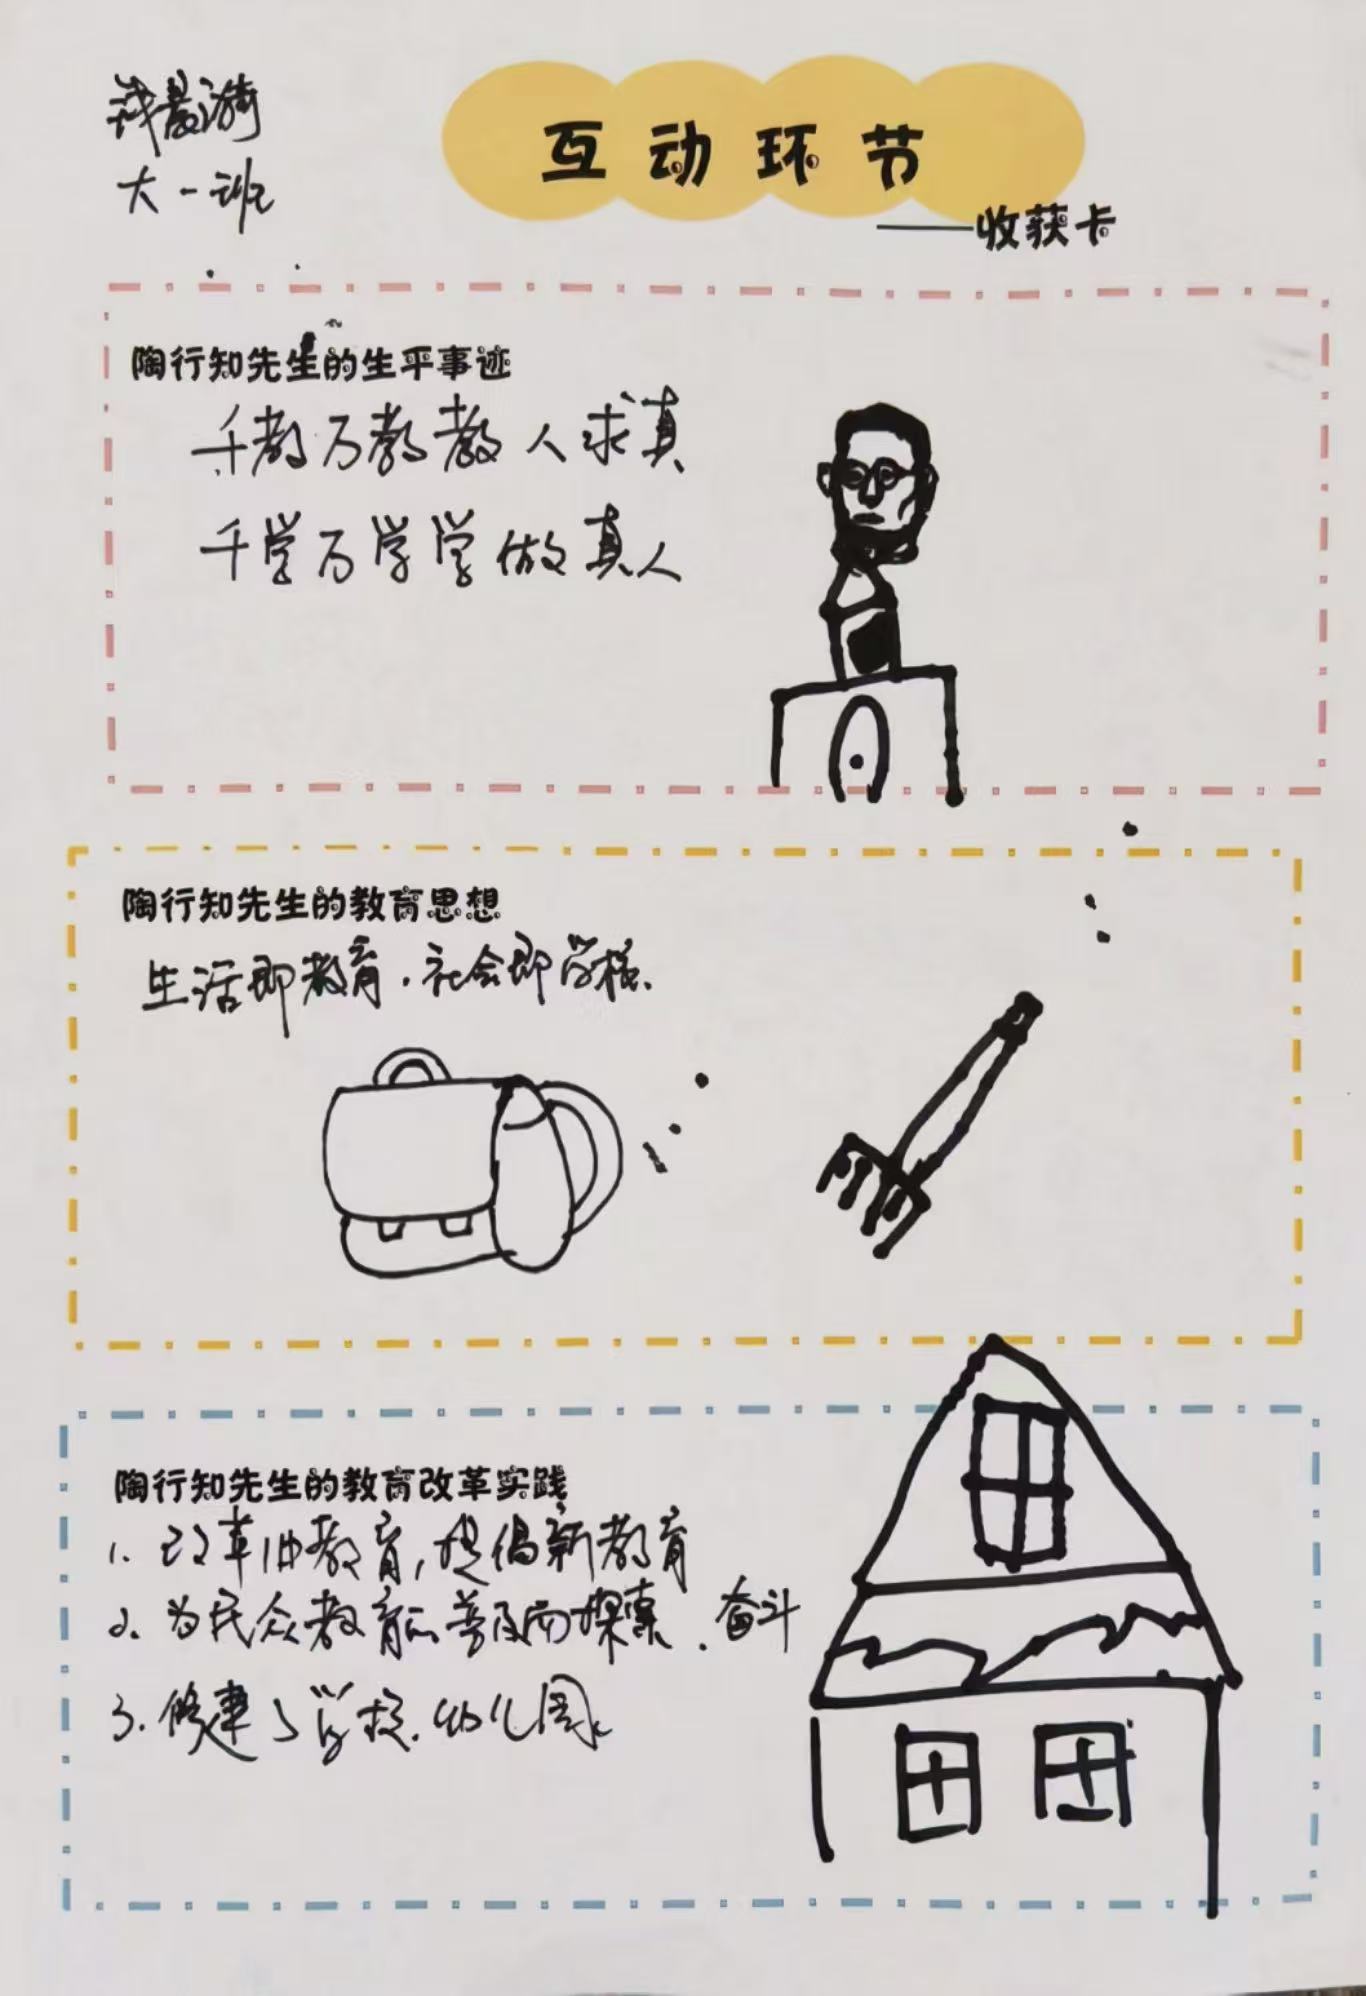 钱晨漪
大一班
互动环节
——收获卡
陶行知先生的生平事迹
千教万教教人求真
千学万学学做真人
陶行知先生的教育思想
生活即教育.社会即学校.
陶行知先生的教育改革实践
1. 改革旧教育,提倡新教育
2. 为民众教育的普及而探索.奋斗
3. 修建了学校.幼儿园.